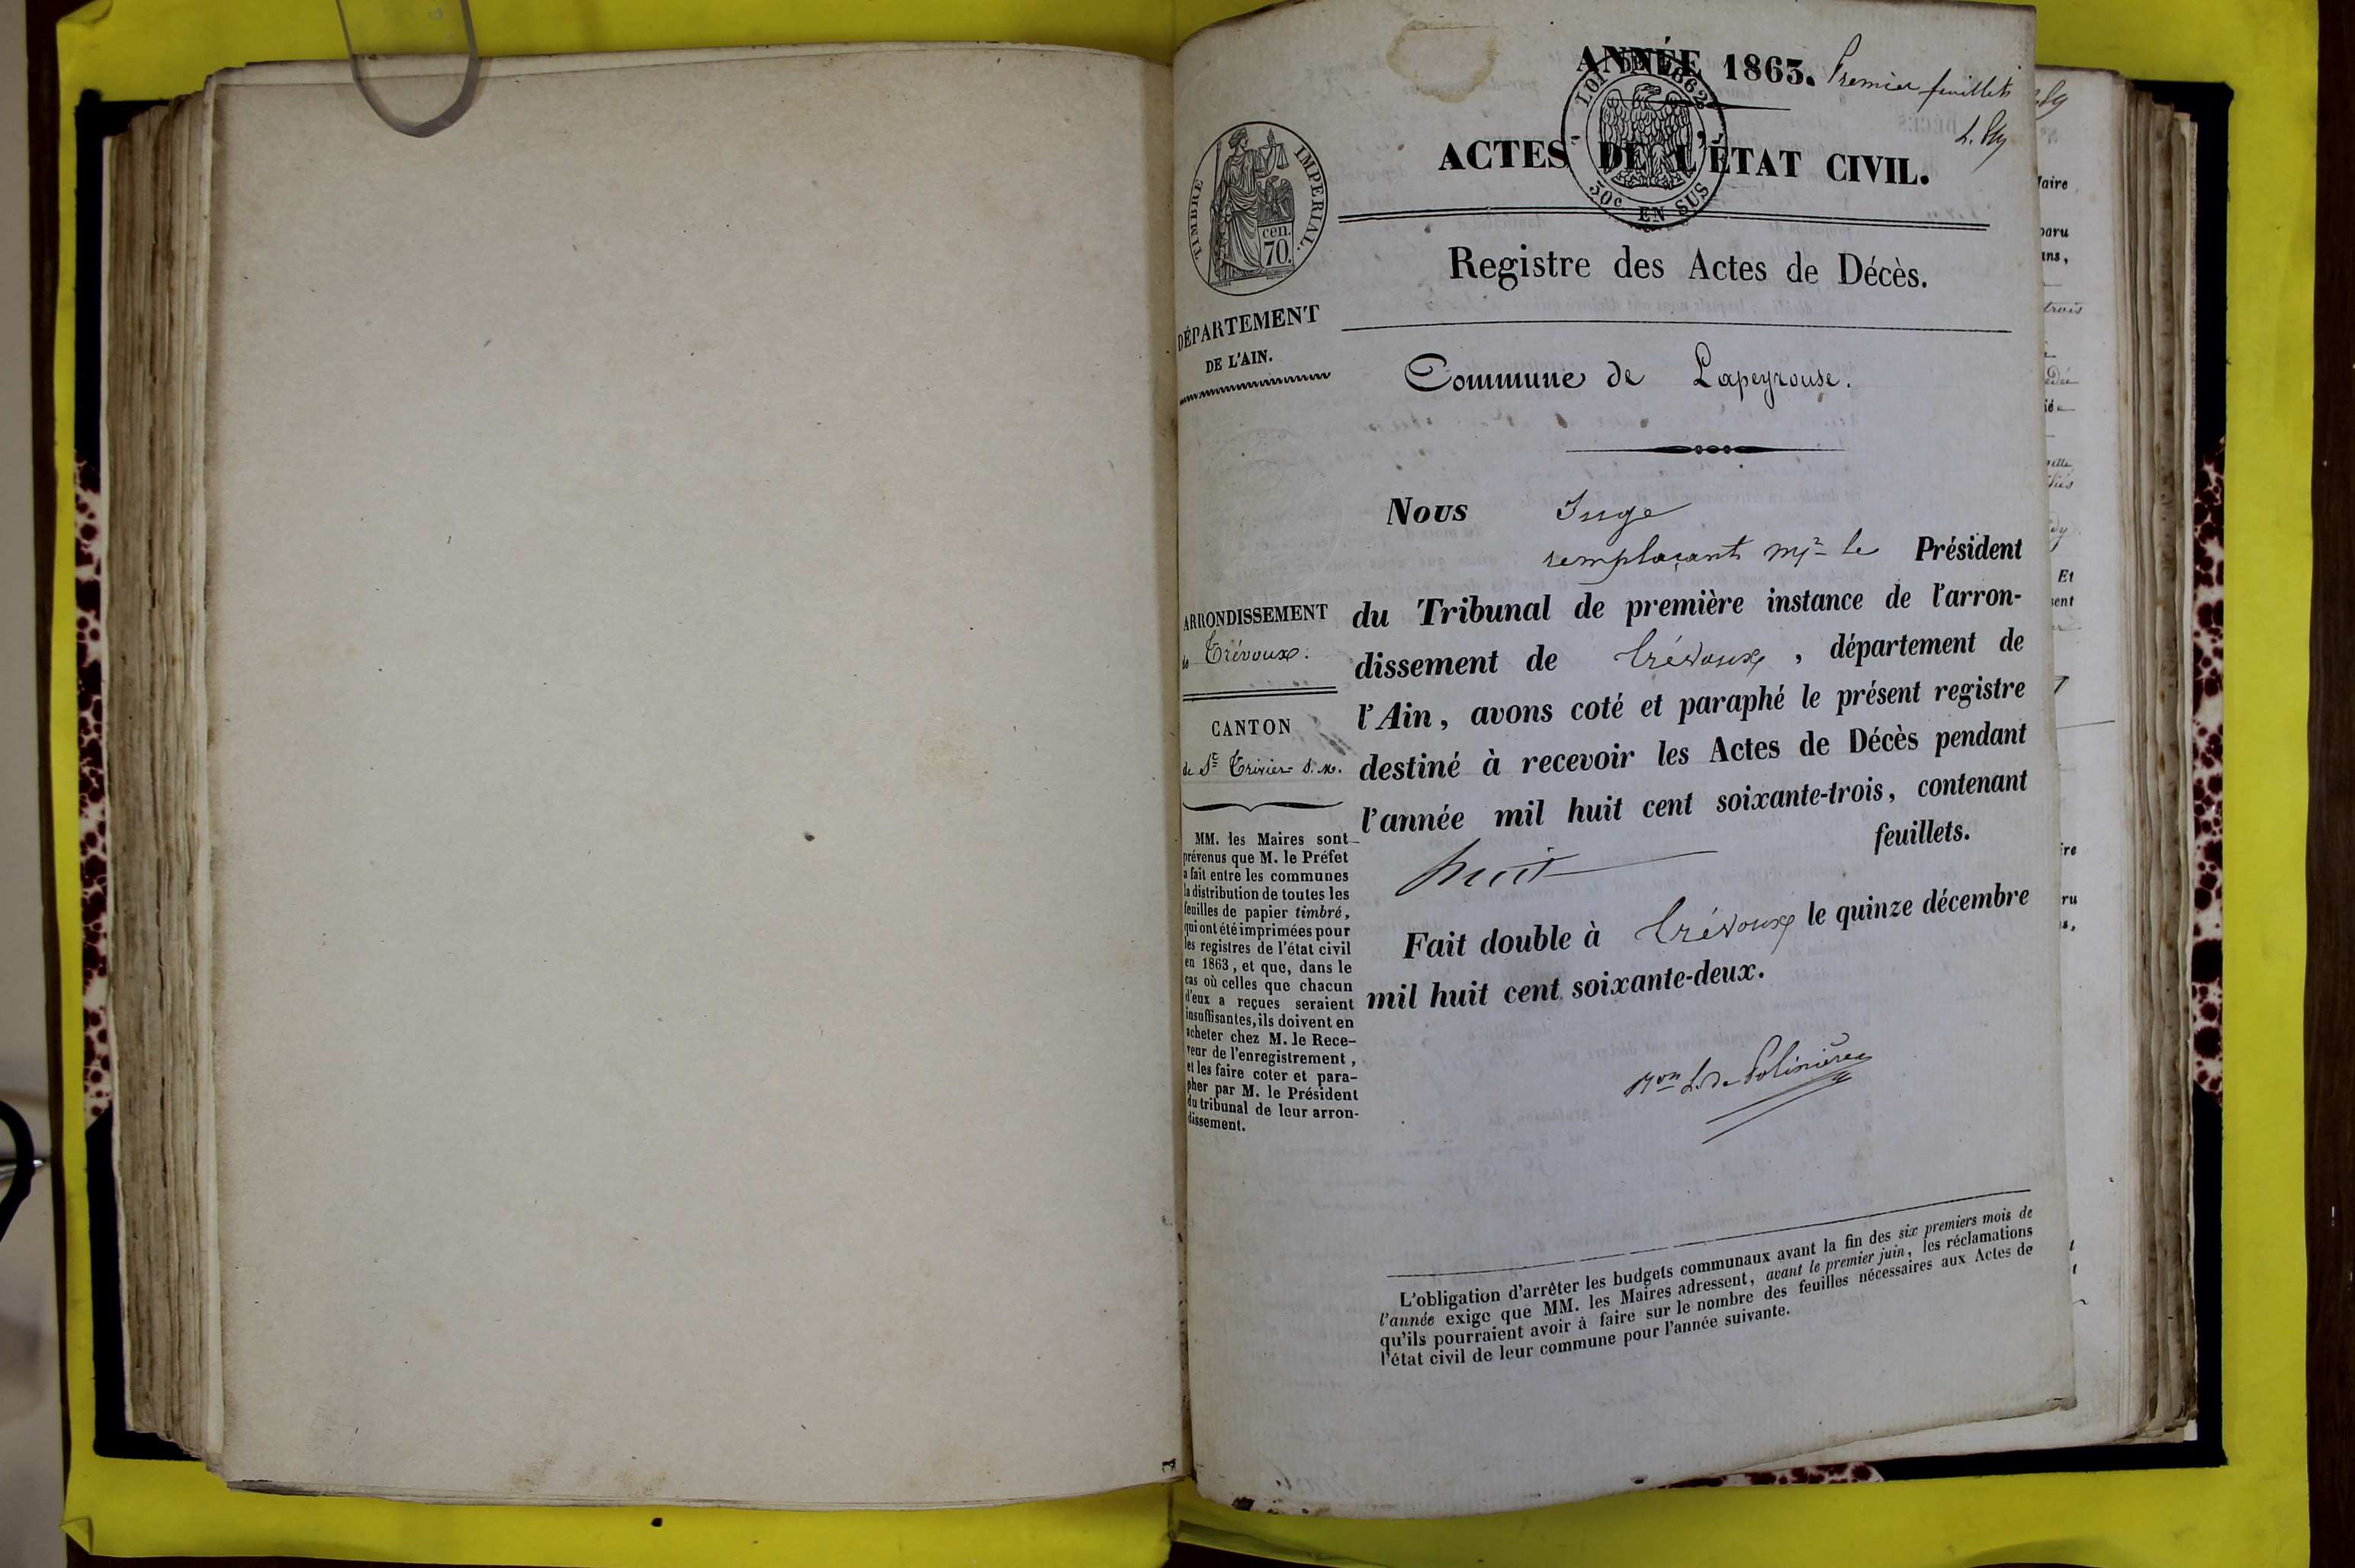 ANNÉE 1863. Premier feuillet
ACTES DE L'ÉTAT CIVIL.
LOI DE 1862
50c EN SUS
TIMBRE IMPÉRIAL.
cen.
70.
Registre des Actes de Décès.
DÉPARTEMENT
DE L'AIN.
Commune de Lapeyrouse.
ARRONDISSEMENT
de Trévoux.
CANTON
de St Trivier S. M.
MM. les Maires sont
prévenus que M. le Préfet
a fait entre les communes
la distribution de toutes les
feuilles de papier timbré,
qui ont été imprimées pour
les registres de l'état civil
en 1863, et que, dans le
cas où celles que chacun
d'eux a reçues seraient
insuffisantes, ils doivent en
acheter chez M. le Rece-
veur de l'enregistrement,
et les faire coter et para-
pher par M. le Président
du tribunal de leur arron-
dissement.
Nous Juge
remplaçant Mr le Président
du Tribunal de première instance de l'arron-
dissement de Trévoux, département de
l'Ain, avons coté et paraphé le présent registre
destiné à recevoir les Actes de Décès pendant
l'année mil huit cent soixante-trois, contenant
huit feuillets.
Fait double à Trévoux le quinze décembre
mil huit cent soixante-deux.
L. de Polinière
L'obligation d'arrêter les budgets communaux avant la fin des six premiers mois de
l'année exige que MM. les Maires adressent, avant le premier juin, les réclamations
qu'ils pourraient avoir à faire sur le nombre des feuilles nécessaires aux Actes de
l'état civil de leur commune pour l'année suivante.